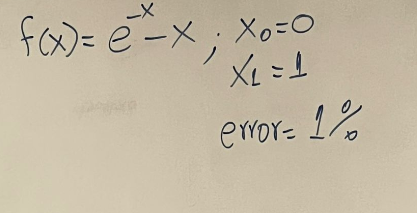 f(x)= e^-x - x ; x₀=0
x₁ = 1
error= 1%